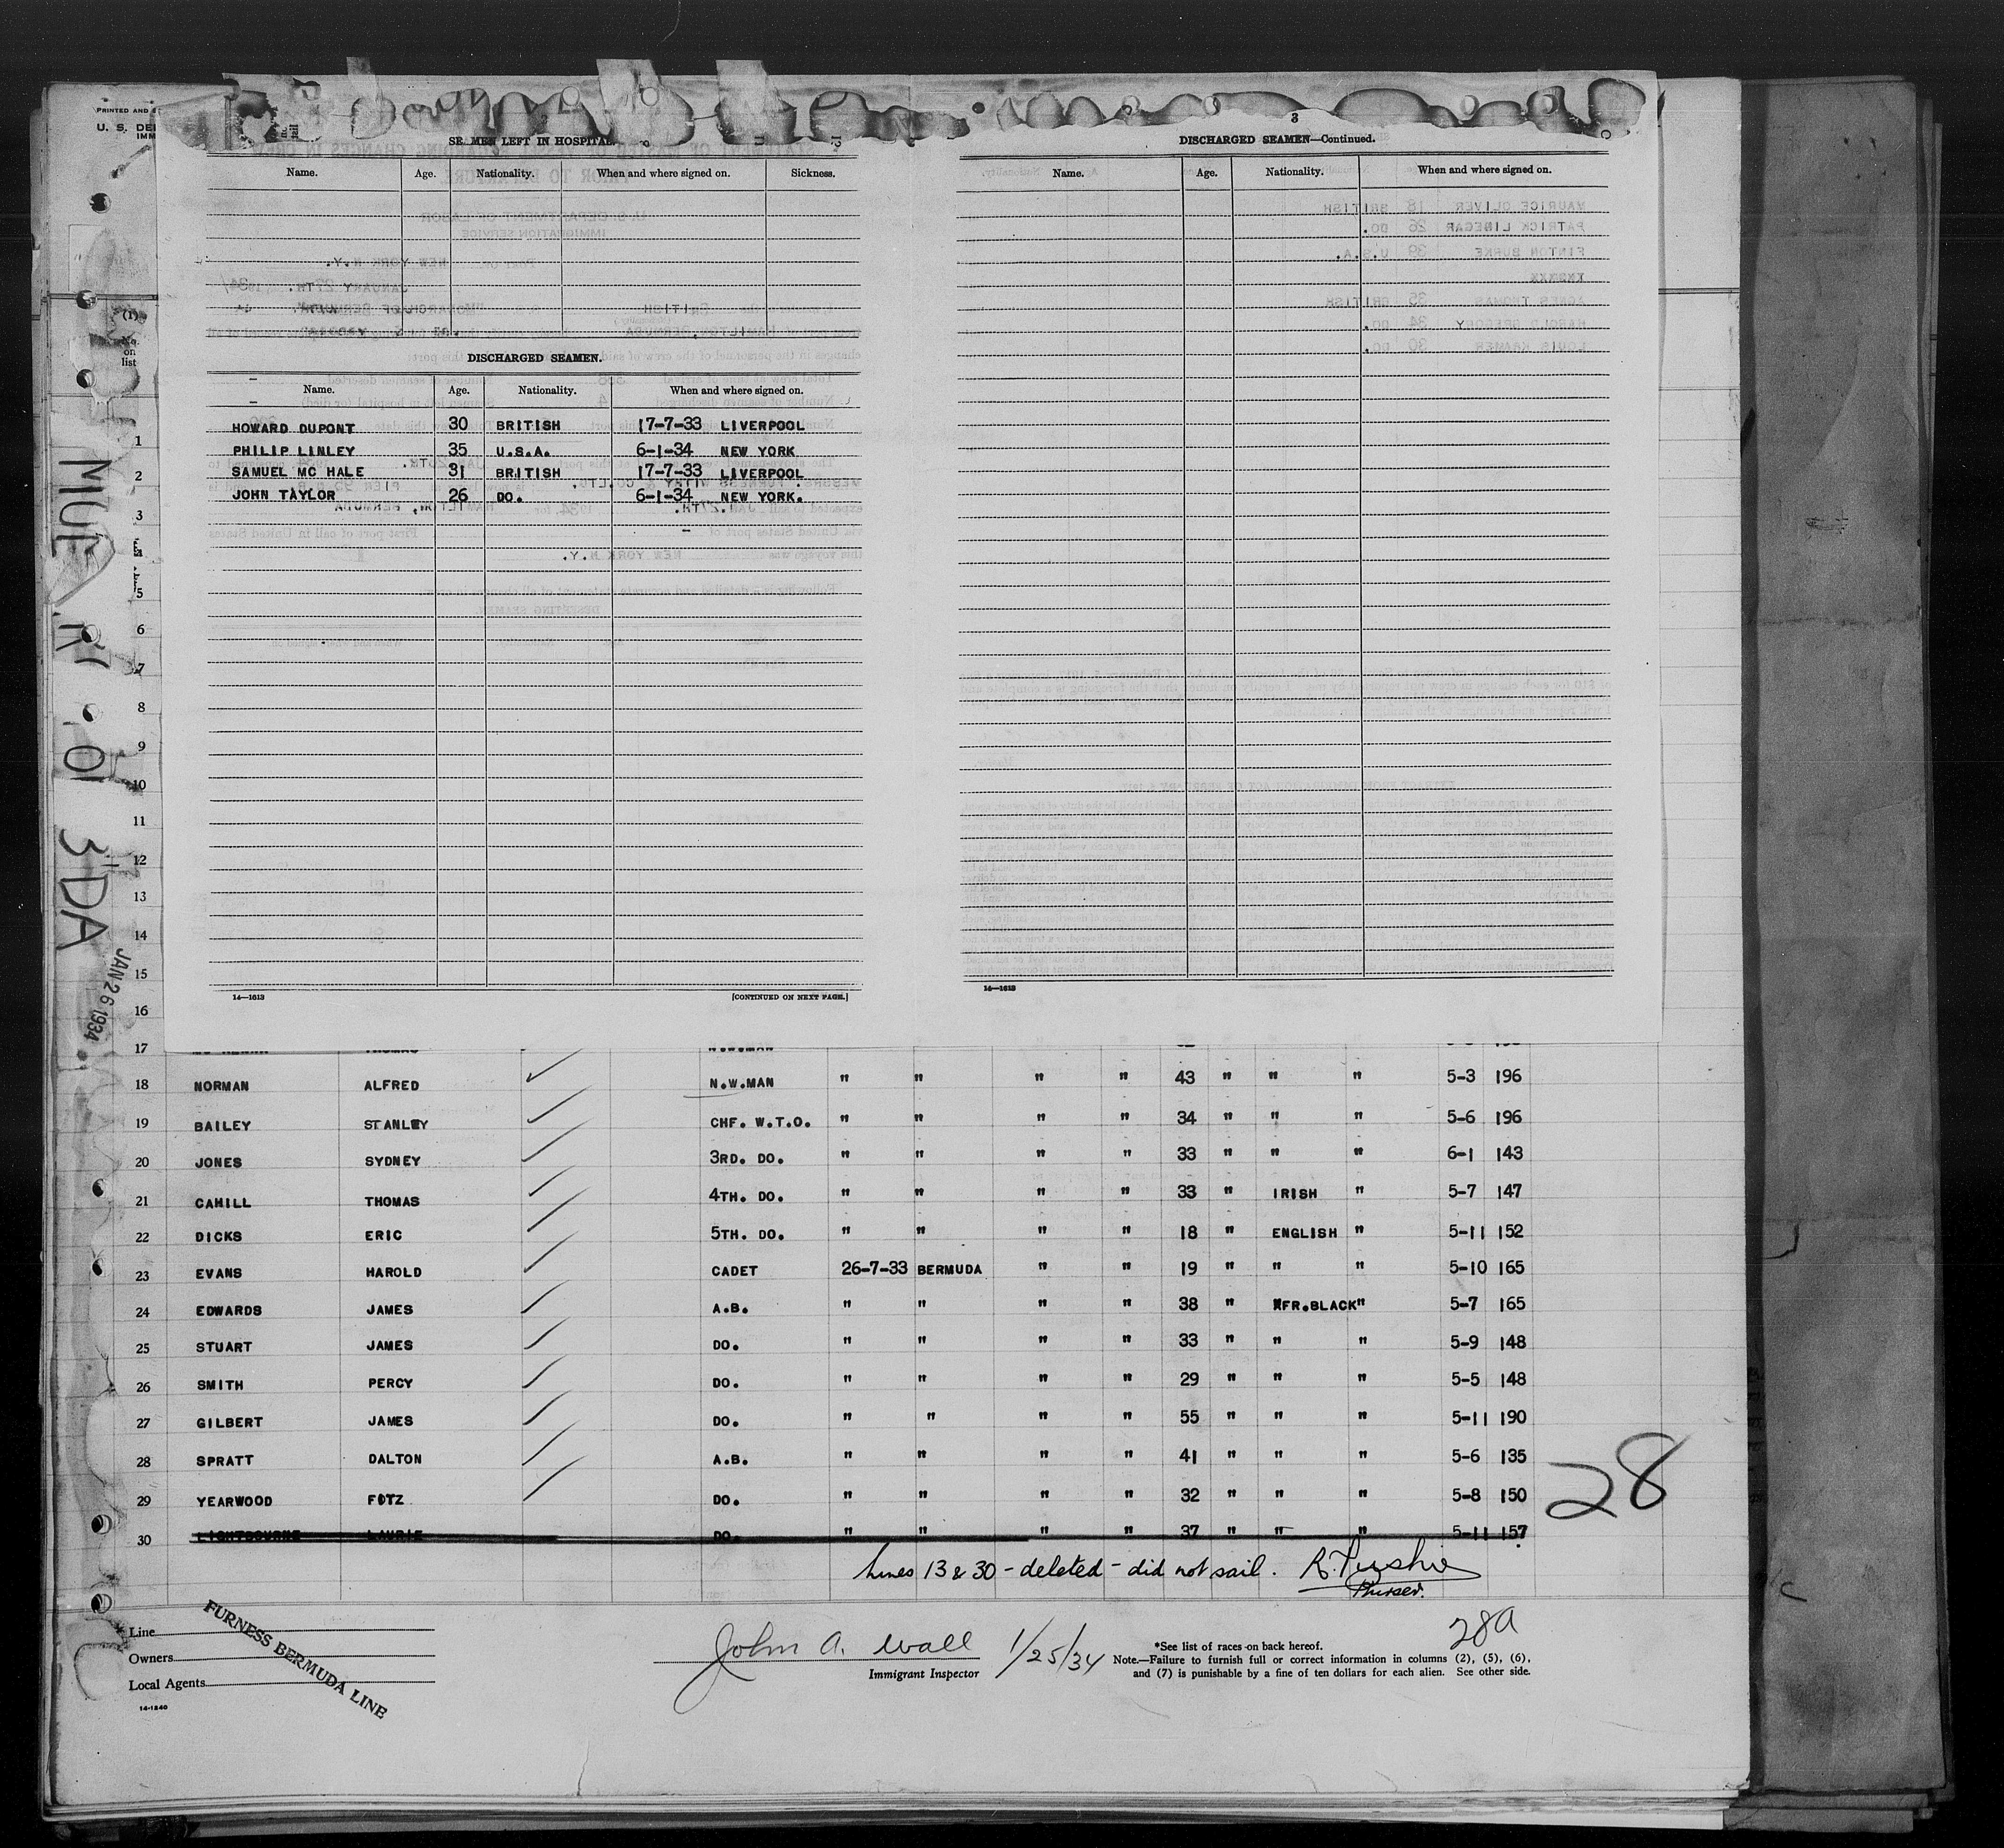 PRINTED AND
U. S. DE
IMM
SE MEN LEFT IN HOSPITAL.
Name. Age. Nationality. When and where signed on. Sickness.
DISCHARGED SEAMEN.
Name. Age. Nationality. When and where signed on.
HOWARD DUPONT 30 BRITISH 17-7-33 LIVERPOOL
PHILIP LINLEY 35 U.S.A. 6-1-34 NEW YORK
SAMUEL MC HALE 31 BRITISH 17-7-33 LIVERPOOL
JOHN TAYLOR 26 DO. 6-1-34 NEW YORK.
14—1613 [CONTINUED ON NEXT PAGE.]
3
DISCHARGED SEAMEN—Continued.
Name. Age. Nationality. When and where signed on.
14—1613
(1)
No.
on
list
1
2
3
4
5
6
7
8
9
10
11
12
13
14
15
16
JAN 26 1934
17 THOMAS
18 NORMAN ALFRED N.W.MAN " " " " 43 " " " 5-3 196
19 BAILEY STANLEY CHF. W.T.O. " " " " 34 " " " 5-6 196
20 JONES SYDNEY 3RD. DO. " " " " 33 " " " 6-1 143
21 CAHILL THOMAS 4TH. DO. " " " " 33 " IRISH " 5-7 147
22 DICKS ERIC 5TH. DO. " " " " 18 " ENGLISH " 5-11 152
23 EVANS HAROLD CADET 26-7-33 BERMUDA " " 19 " " " 5-10 165
24 EDWARDS JAMES A.B. " " " " 38 " AFR.BLACK " 5-7 165
25 STUART JAMES DO. " " " " 33 " " " 5-9 148
26 SMITH PERCY DO. " " " " 29 " " " 5-5 148
27 GILBERT JAMES DO. " " " " 55 " " " 5-11 190
28 SPRATT DALTON A.B. " " " " 41 " " " 5-6 135
29 YEARWOOD FITZ DO. " " " " 32 " " " 5-8 150
30 LIGHTBOURNE LAURIE DO. " " " " 37 " " " 5-11 157
28
Lines 13 & 30 - deleted - did not sail.
Purser.
28A
Line
Owners
Local Agents
FURNESS BERMUDA LINE
14-1240
John A. Wall 1/25/34
Immigrant Inspector
*See list of races on back hereof.
Note.—Failure to furnish full or correct information in columns (2), (5), (6),
and (7) is punishable by a fine of ten dollars for each alien. See other side.